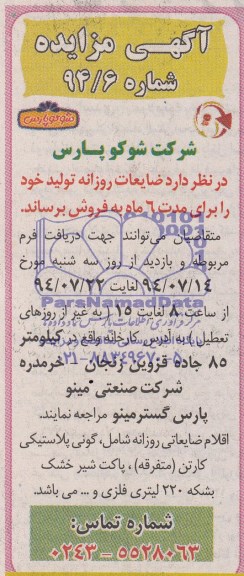 آگهی مزایده
شماره ۹۴/۶
شوکوپارس
شرکت شوکو پارس
در نظر دارد ضایعات روزانه تولید خود
را برای مدت ۶ ماه به فروش برساند.
متقاضیان می‌توانند جهت دریافت فرم
مربوطه و بازدید از روز سه شنبه مورخ
۹۴/۰۷/۱۴ لغایت ۹۴/۰۷/۲۲
از ساعت ۸ لغایت ۱۵ (به غیر از روزهای
تعطیل) به آدرس کارخانه واقع در کیلومتر
۸۵ جاده قزوین زنجان - خرمدره
شرکت صنعتی مینو
پارس گسترمینو مراجعه نمایند.
اقلام ضایعاتی روزانه شامل، گونی پلاستیکی
کارتن (متفرقه) ، پاکت شیر خشک
بشکه ۲۲۰ لیتری فلزی و ... می باشد.
شماره تماس:
۰۲۴۳ - ۵۵۲۸۰۶۳
ParsNamadData
۰۲۱-۸۸۳۴۹۶۷۰-۵